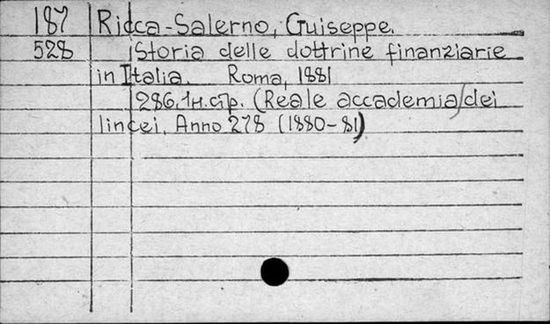 187 Ricca-Salerno, Guiseppe.
528 Storia delle dottrine finanziarie
in Italia. Roma, 1881
286, 1н. стр. (Reale accademia dei
lincei, Anno 278 (1880-81)